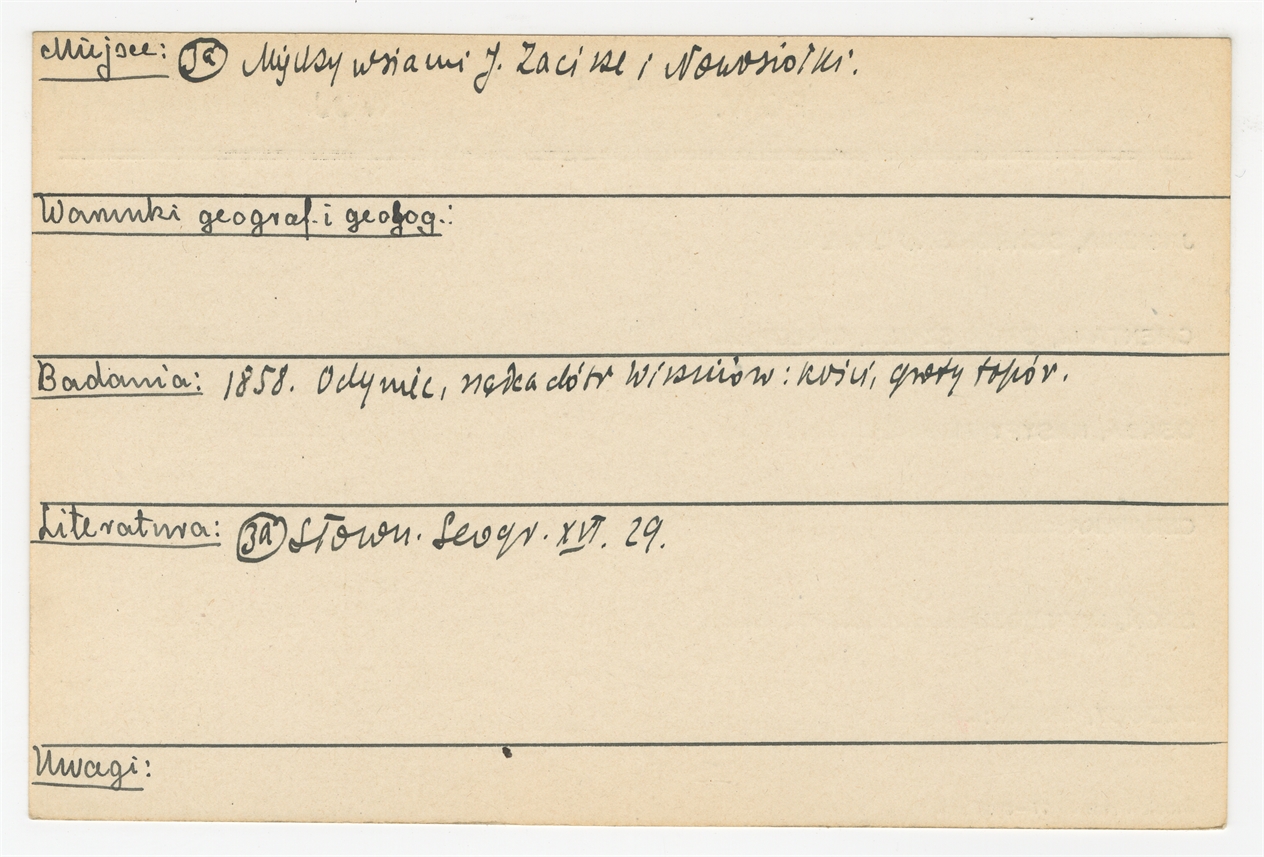 Miejsce: 3a Między wsiami J. Zacisze i Nowosiołki.
Warunki geograf. i geolog.:
Badania: 1858. Odyniec, Wiszniów: kości, groty topór.
Literatura: 3a Słown. Geogr. XVI. 29.
Uwagi: